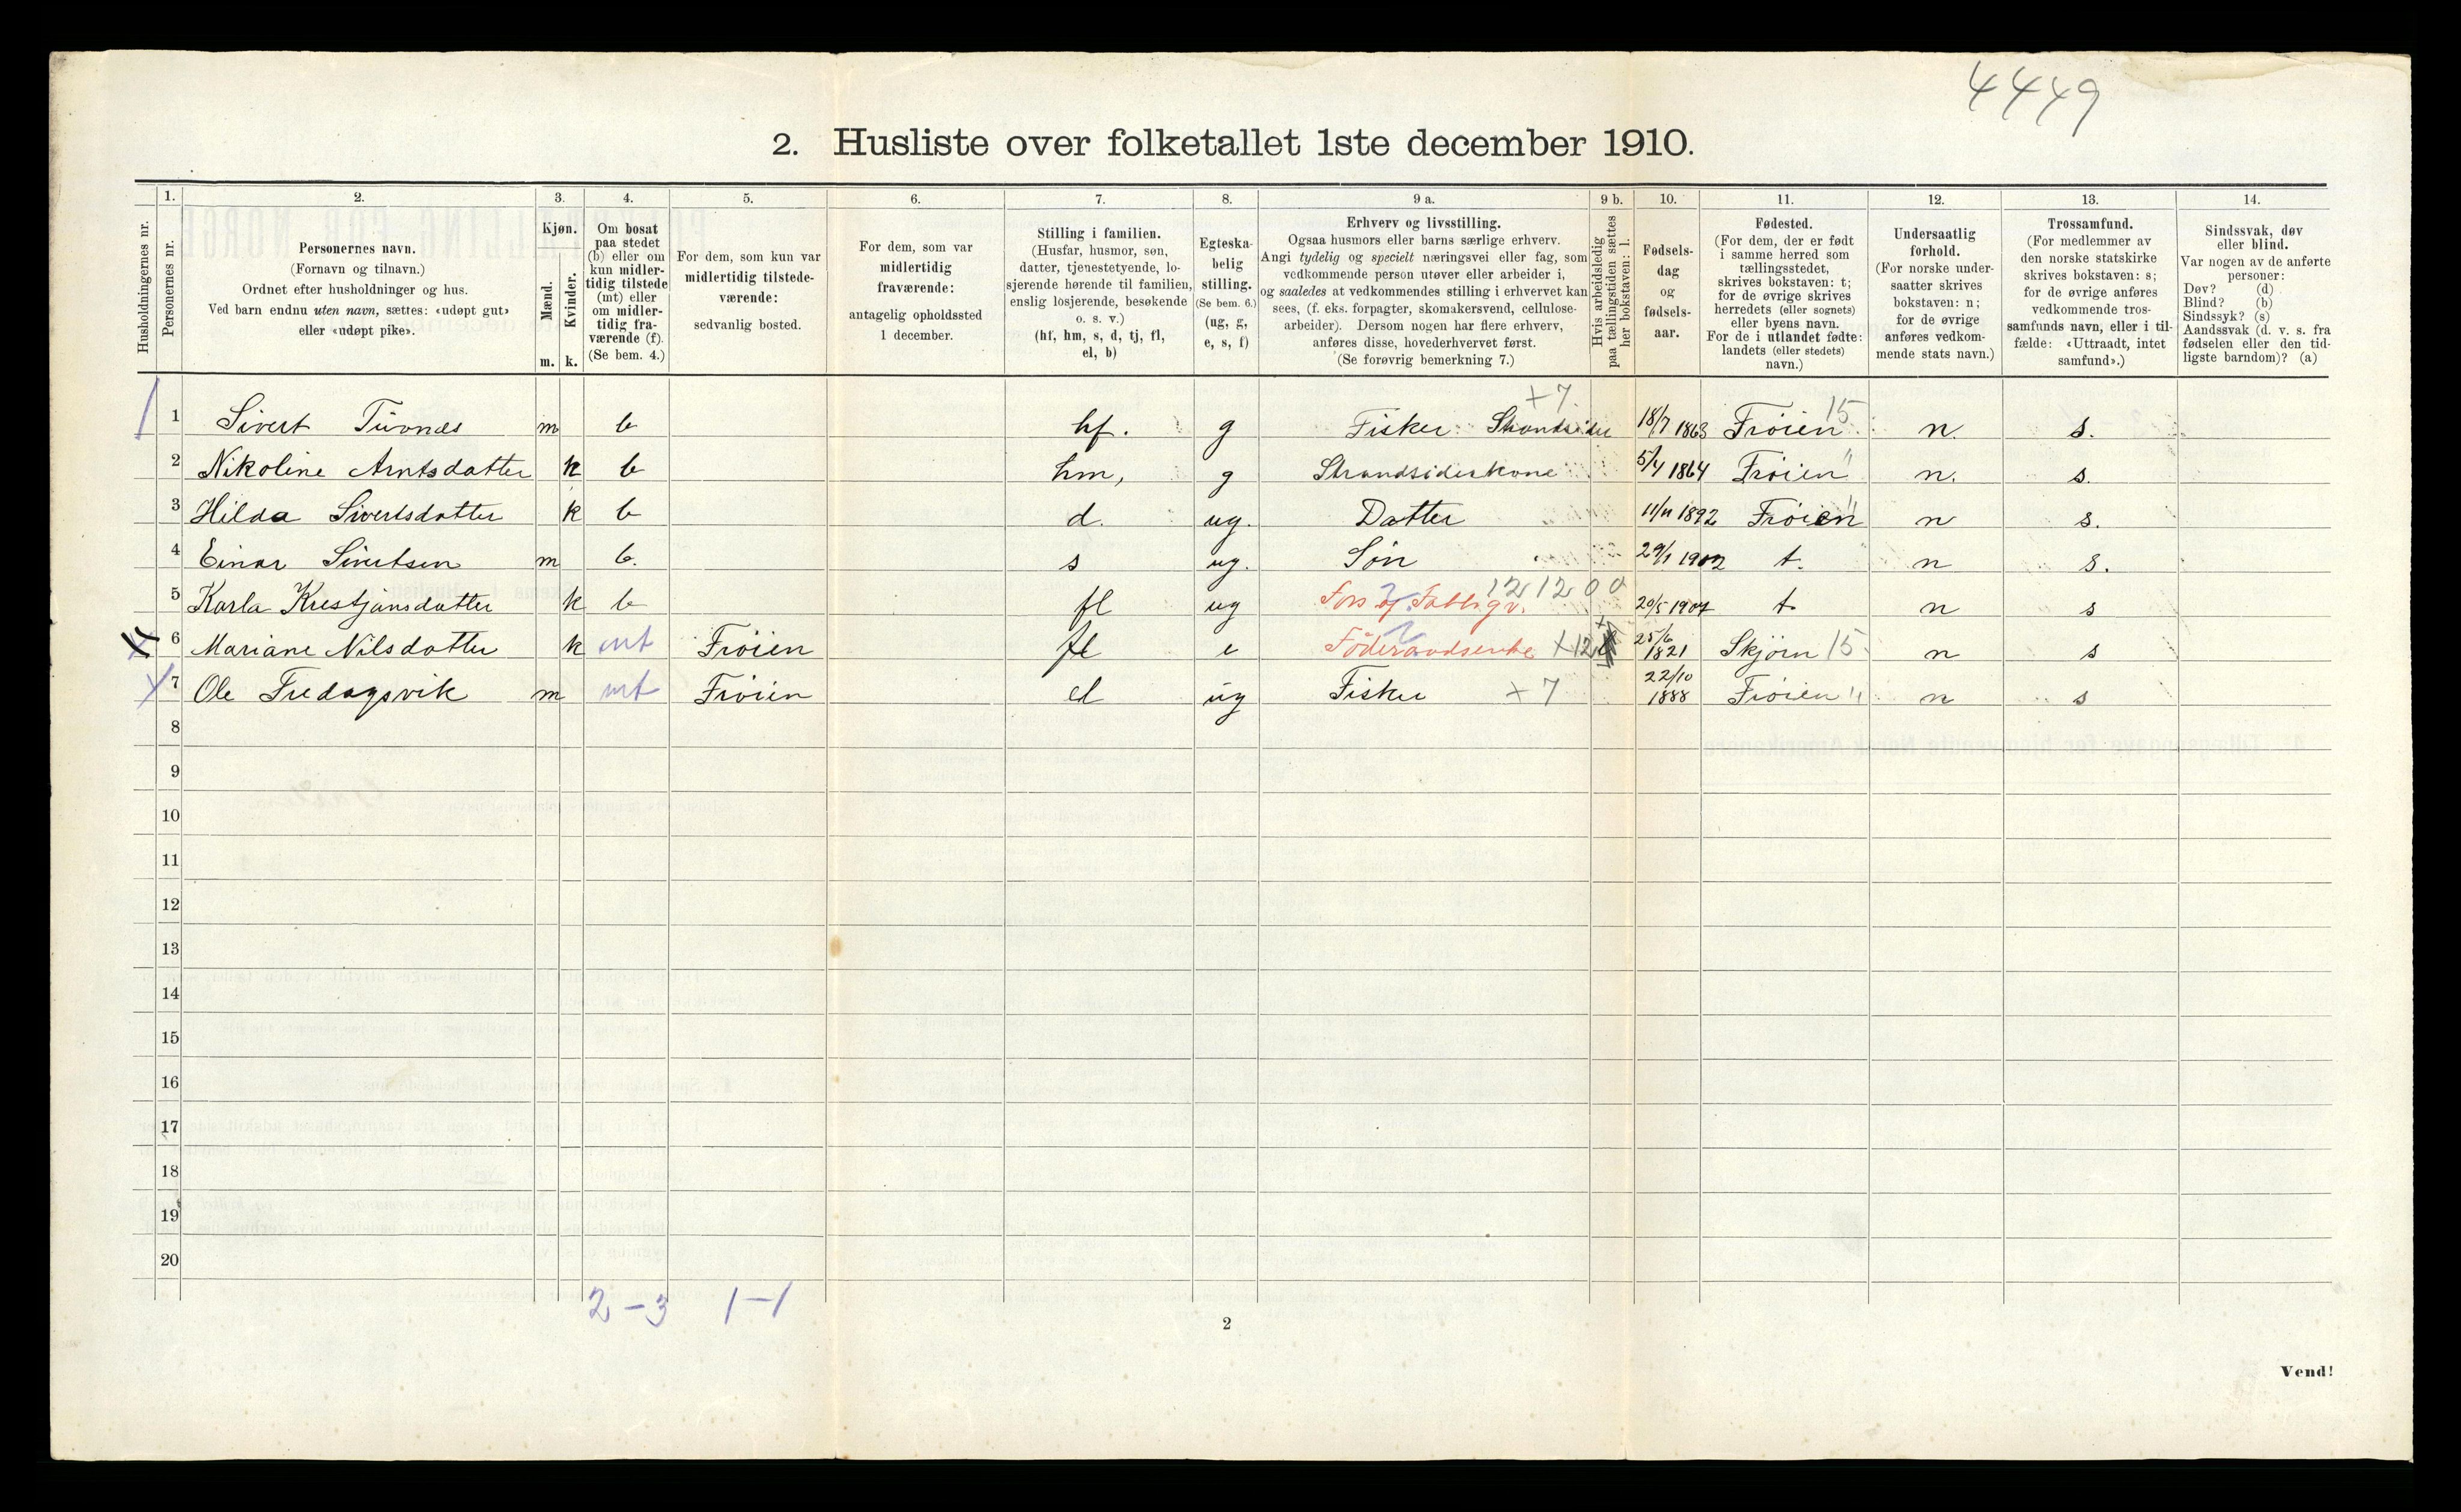 4449
2. Husliste over folketallet 1ste december 1910.
Husholdningernes nr.
1.
Personernes nr.
2.
Personernes navn.
(Fornavn og tilnavn.)
Ordnet efter husholdninger og hus.
Ved barn endnu uten navn, sættes: «udøpt gut»
eller «udøpt pike».
3.
Kjøn.
Mænd.
Kvinder.
m. k.
4.
Om bosat
paa stedet
(b) eller om
kun midler-
tidig tilstede
(mt) eller
om midler-
tidig fra-
værende (f).
(Se bem. 4.)
5.
For dem, som kun var
midlertidig tilstede-
værende:
sedvanlig bosted.
6.
For dem, som var
midlertidig
fraværende:
antagelig opholdssted
1 december.
7.
Stilling i familien.
(Husfar, husmor, søn,
datter, tjenestetyende, lo-
sjerende hørende til familien,
enslig losjerende, besøkende
o. s. v.)
(hf, hm, s, d, tj, fl,
el, b)
8.
Egteska-
belig
stilling.
(Se bem. 6.)
(ug, g,
e, s, f)
9 a.
Erhverv og livsstilling.
Ogsaa husmors eller barns særlige erhverv.
Angi tydelig og specielt næringsvei eller fag, som
vedkommende person utøver eller arbeider i,
og saaledes at vedkommendes stilling i erhvervet kan
sees, (f. eks. forpagter, skomakersvend, cellulose-
arbeider). Dersom nogen har flere erhverv,
anføres disse, hovederhvervet først.
(Se forøvrig bemerkning 7.)
9 b.
Hvis arbeidsledig
paa tællingstiden sættes
her bokstaven: l.
10.
Fødsels-
dag
og
fødsels-
aar.
11.
Fødested.
(For dem, der er født
i samme herred som
tællingsstedet,
skrives bokstaven: t;
for de øvrige skrives
herredets (eller sognets)
eller byens navn.
For de i utlandet fødte:
landets (eller stedets)
navn.)
12.
Undersaatlig
forhold.
(For norske under-
saatter skrives
bokstaven: n;
for de øvrige
anføres vedkom-
mende stats navn.)
13.
Trossamfund.
(For medlemmer av
den norske statskirke
skrives bokstaven: s;
for de øvrige anføres
vedkommende tros-
samfunds navn, eller i til-
fælde: «Uttraadt, intet
samfund».)
14.
Sindssvak, døv
eller blind.
Var nogen av de anførte
personer:
Døv? (d)
Blind? (b)
Sindssyk? (s)
Aandssvak (d. v. s. fra
fødselen eller den tid-
ligste barndom)? (a)
1 Sivert m b hf. g Fisker Strandsider +7 18/7 1863 Frøien 15 n. s.
2 Nikoline Arntsdatter k b hm, g Strandsiderkone 5/4 1864 Frøien " n. s.
3 Hilda Sivertsdatter k b d. ug. Datter 11/11 1892 Frøien " n s.
4 Einar Sivertsen m b. s ug. Søn 29/1 1902 t. n s.
5 Karla Krestjansdatter k b fl ug 121200 20/5 1907 t n s
6 Mariane Nilsdatter k mt Frøien fl e Føderaadsenke X12 25/6 1821 Skjørn 15 n s
7 Ole Fredagsvik m mt Frøien el ug Fisker +7 22/10 1888 Frøien " n s
8
9
10
11
12
13
14
15
16
17
18
19
20
2-3 1-1
2
Vend!